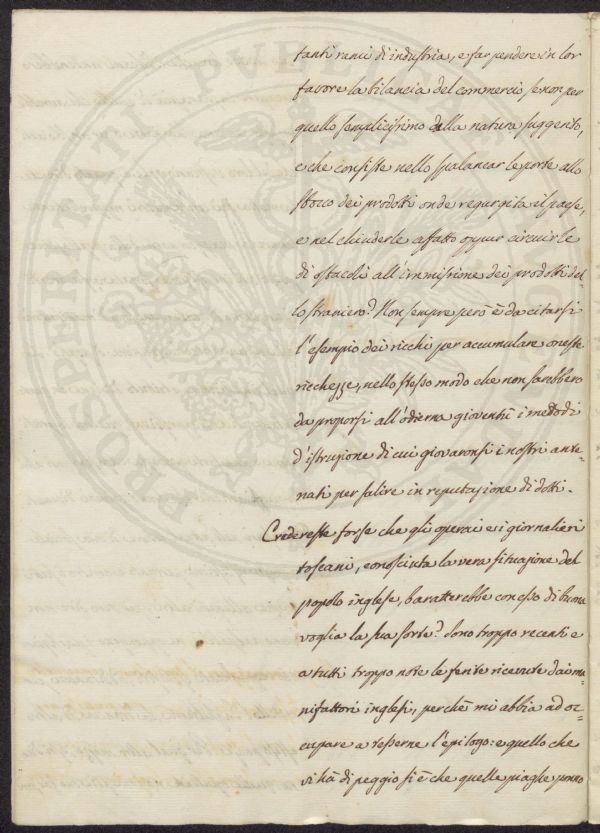 tanti rami di industria, e far pendere in lor
favore la bilancia del commercio se non per
quello semplicissimo dalla natura suggerito,
e che consiste nello spalancar le porte allo
sbocco dei prodotti onde regurgita il paese,
e nel chiuderle affatto oppur circuirle
di ostacoli all'immissione dei prodotti del-
lo straniero? Non sempre però è da citarsi
l'esempio dei ricchi per accumulare oneste
ricchezze, nello stesso modo che non sarebbero
da proporsi all'odierna gioventù i metodi
d'istruzione di cui giovaronsi i nostri ante-
nati per salire in reputazione di dotti.
Credereste forse che gli operai e i giornalieri
toscani, conosciuta la vera situazione del
popolo inglese, baratterebbe con esso di buona
voglia la sua sorte? Sono troppo recenti e
a tutti troppo note le ferite ricevute dai ma-
nifattori inglesi, perchè mi abbia ad oc-
cupare a tesserne l'epilogo: e quello che
vi ha di peggio si è che quelle piaghe ponno
PROSPERITATI PVBLICAE